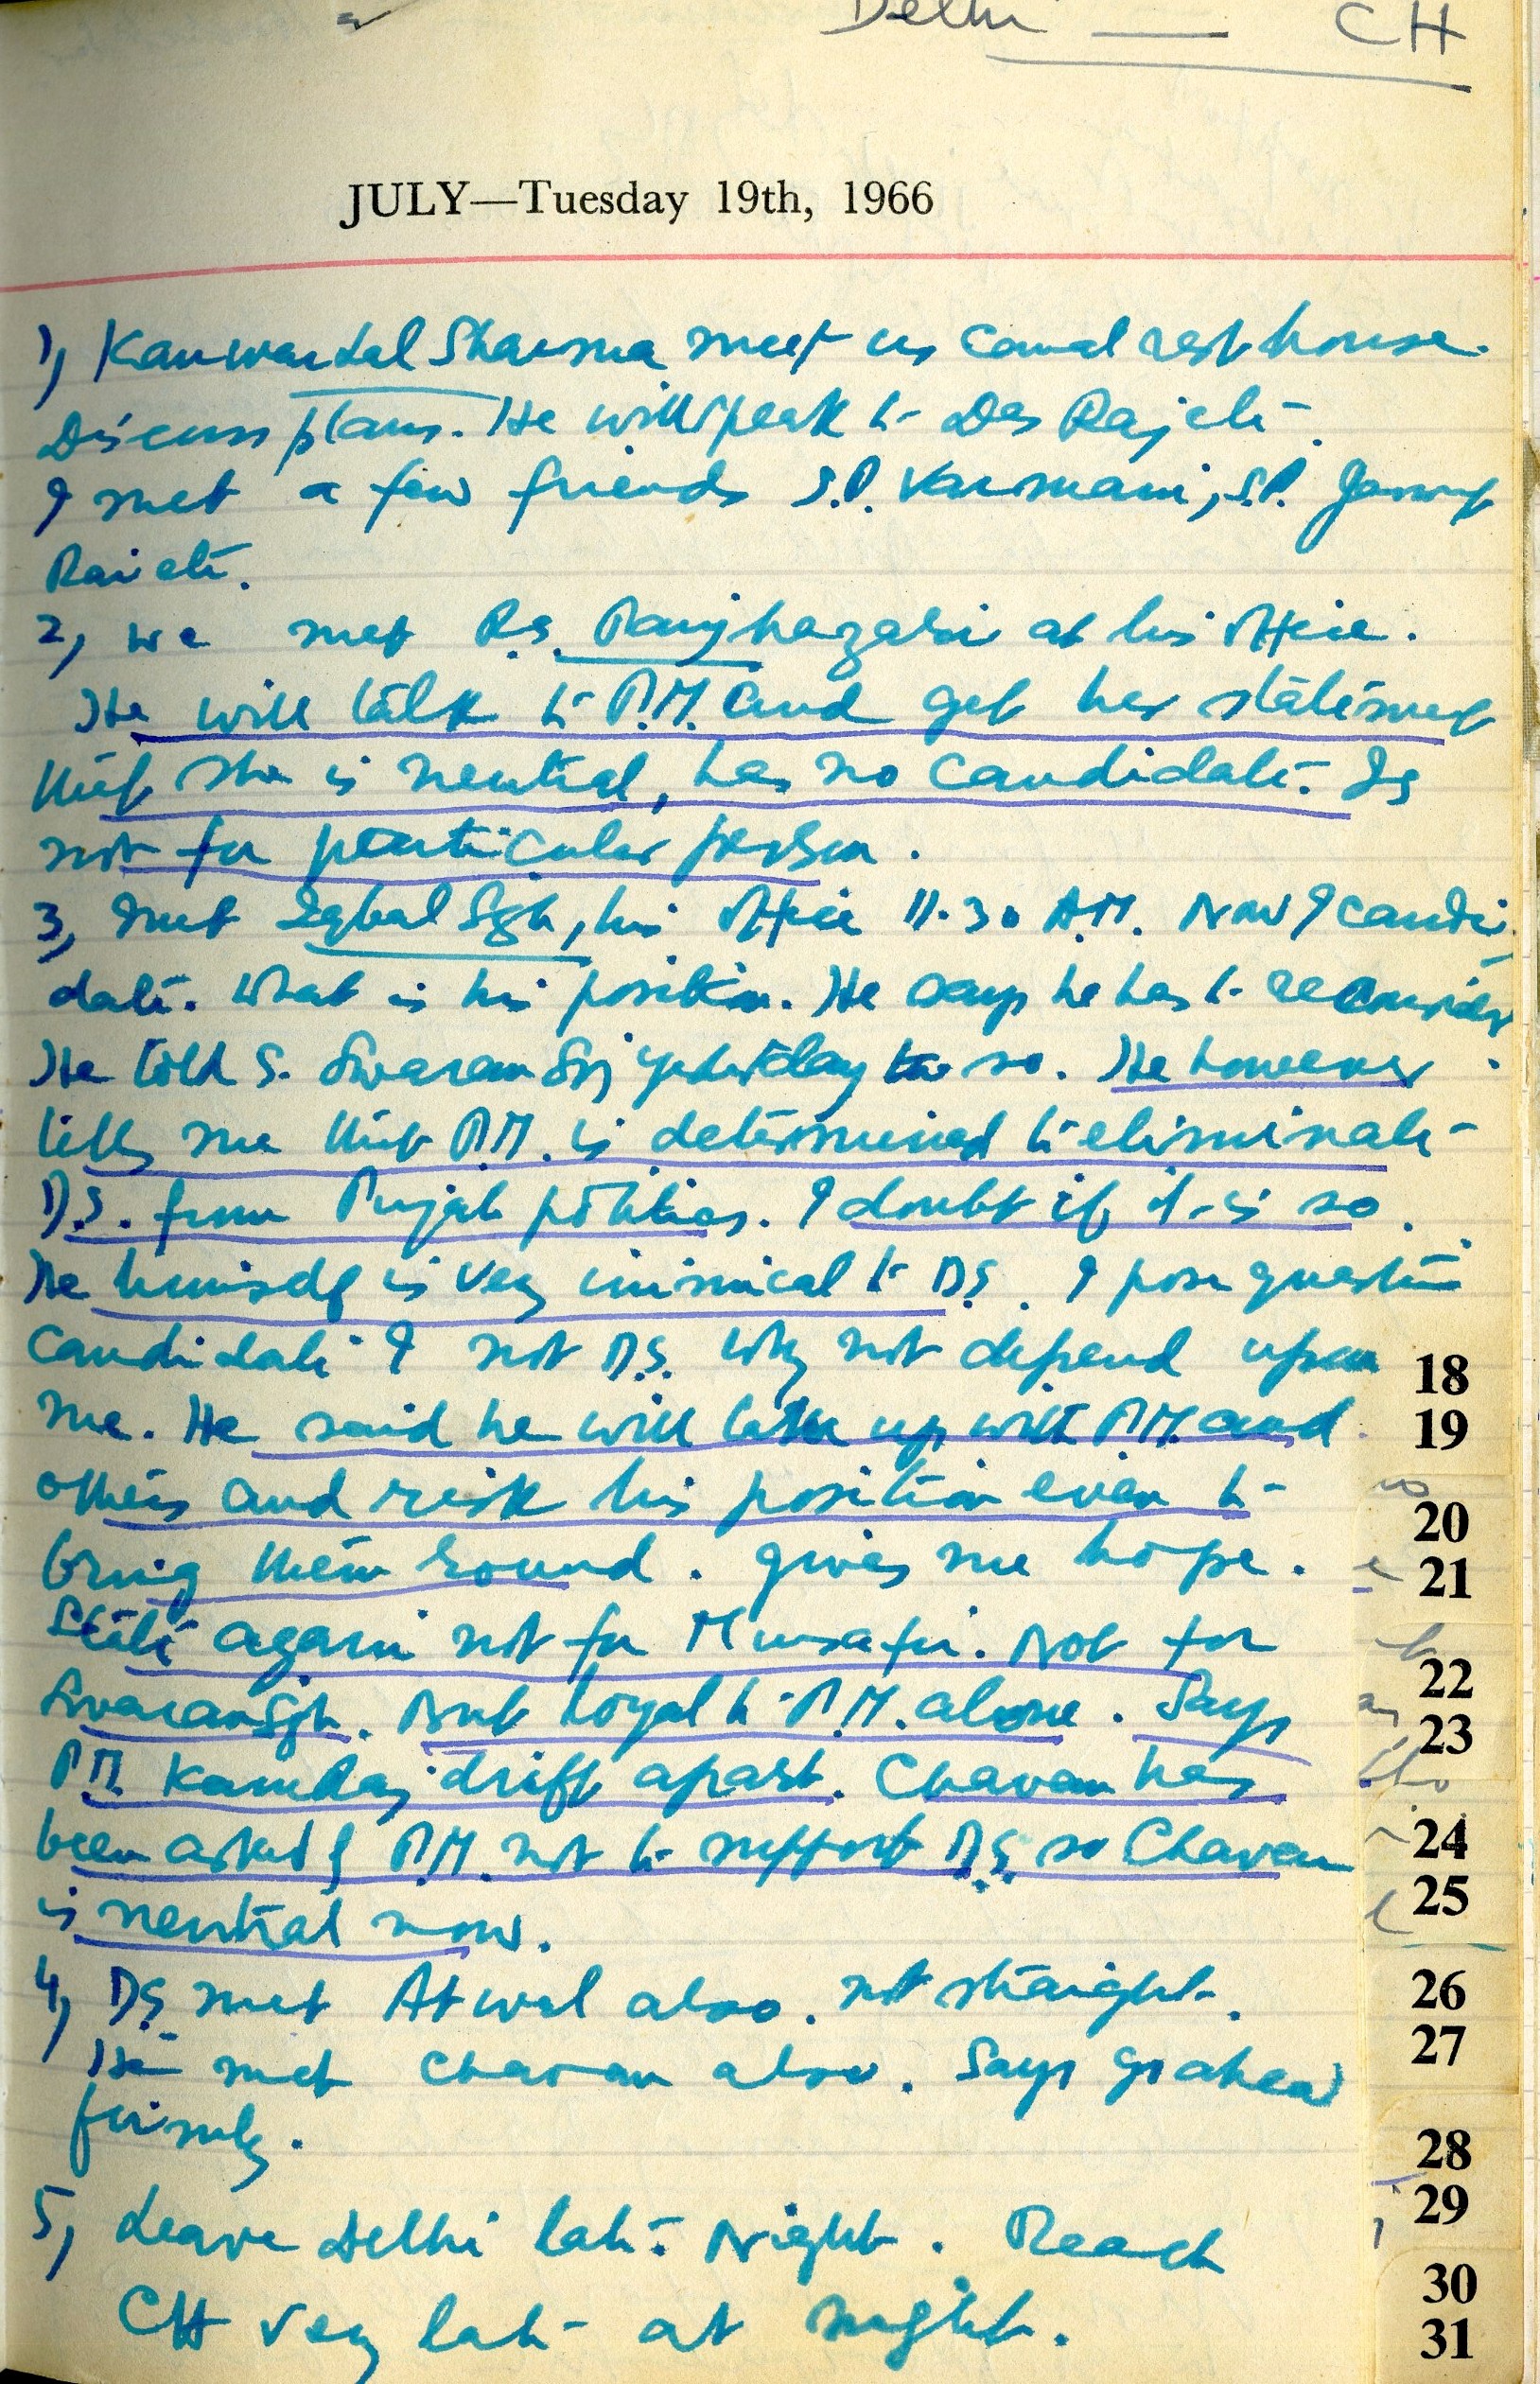 Delhi — CH
JULY—Tuesday 19th, 1966
1, Kanwar Lal Sharma meet us canal rest house.
Discuss plans. He will speak to Des Raj etc.
I met a few friends S.P. Varmani, S.P.
Rai etc.
2, We met R.S. Panjhazari at his office.
He will talk to P.M. and get her statement
that she is neutral, has no candidate. Is
not for particular person.
3, Met Iqbal Sgh, his office 11.30 A.M. Now I candi-
date. What is his position. He says he has to reconsider.
He told S. Swaran Sgh yesterday so. He however
tells me that P.M. is determined to eliminate
D.S. from Punjab politics. I doubt if it is so.
He himself is very inimical to D.S. I pose question
candidate I not D.S. Why not depend upon
me. He said he will take up with P.M. and
others and risk his position even to
bring them round. Gives me hope.
State again not for Musafir. Not for
Swaran Sgh. But loyal to P.M. alone. Says
P.M. Kamraj drift apart. Chavan has
been asked by P.M. not to support D.S. so Chavan
is neutral now.
4, D.S. met Atwal also. not straight.
He met Chavan also. Says go ahead
firmly.
5, Leave Delhi late Night. Reach
CH very late at night.
18
19
20
21
22
23
24
25
26
27
28
29
30
31